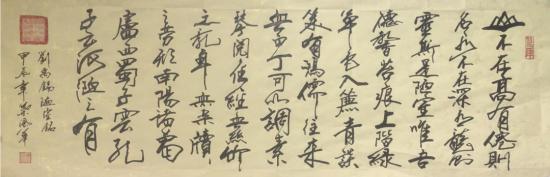 山不在高有僊則
名水不在深有龍則
靈斯是陋室唯吾
德馨苔痕上階綠
草色入簾青談
笑有鴻儒往來
無白丁可以調素
琴閱金經無絲竹
之亂耳無案牘
之勞形南陽諸葛
廬西蜀子雲孔
子云何陋之有
劉禹錫陋室銘
甲辰年